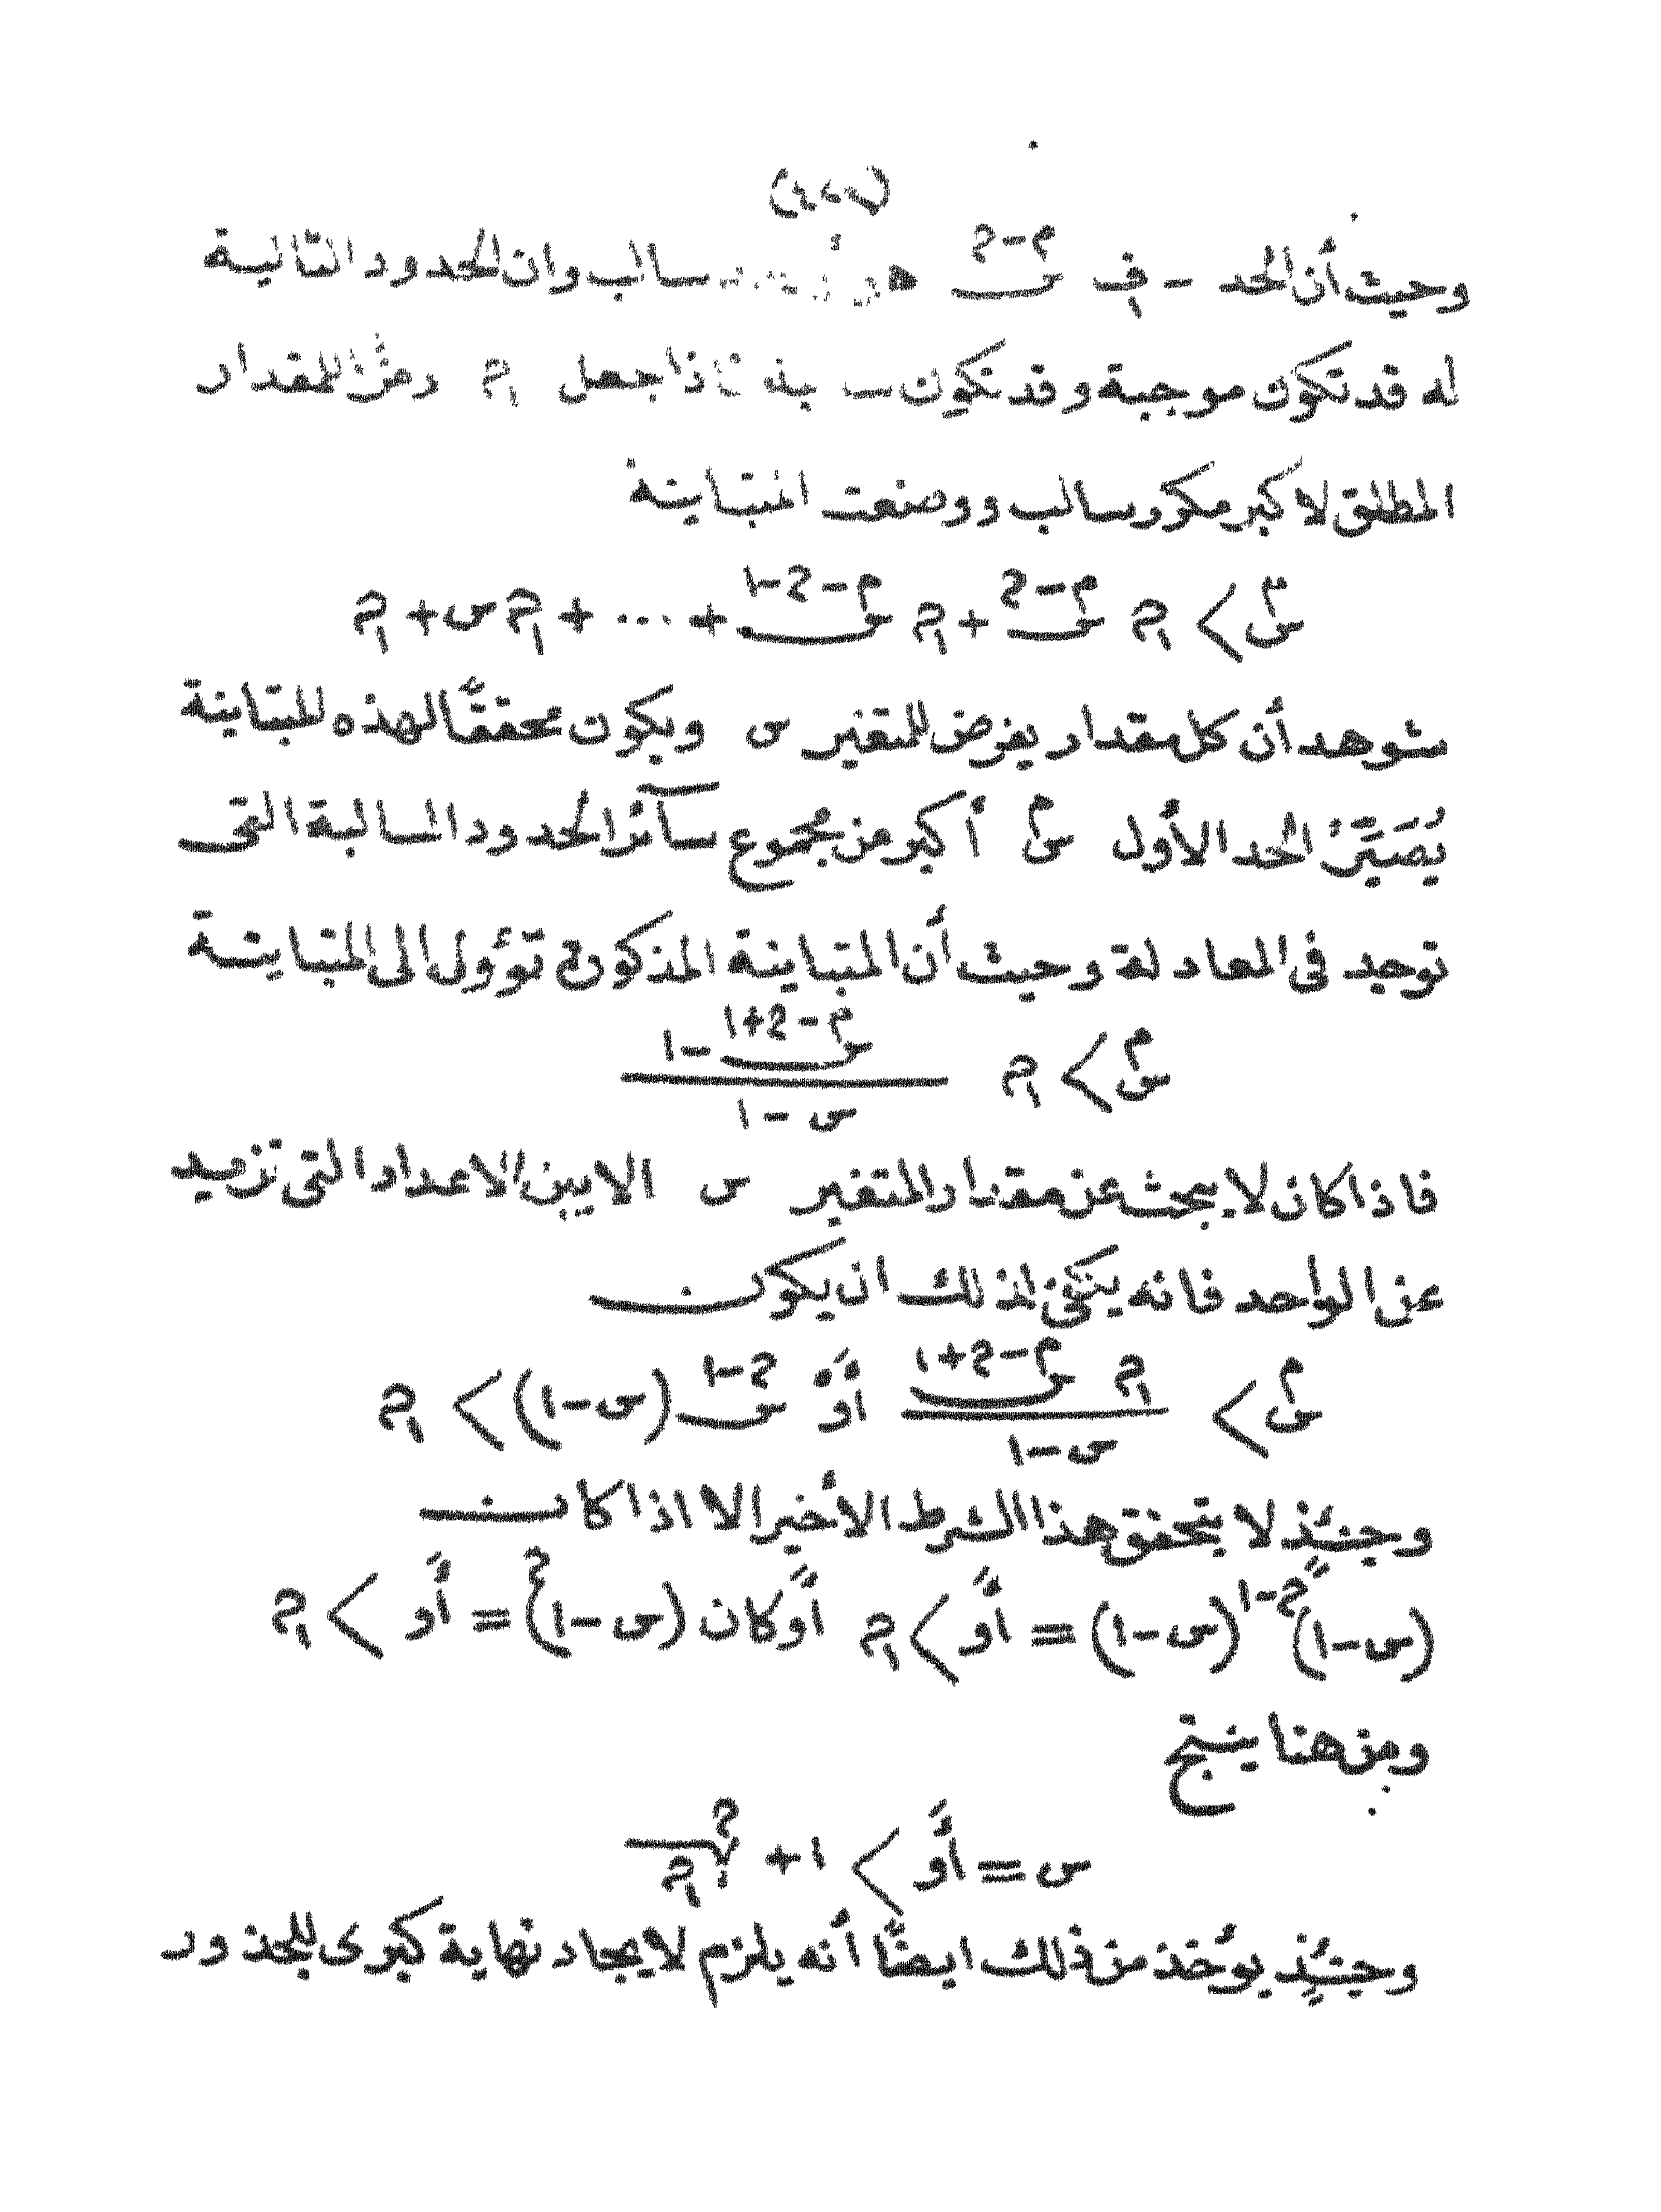 وحيث أن الحد - ف س^(م-ح) هو أول سالب وان الحدود التالية
له قد تكون موجبة وقد تكون سا لبة فاذا جعل م رمزًا للمقدار
المطلق لأكبر مكرر سالب ووضعت المتباينة
س^م > م س^(م-ح) + م س^(م-ح-١) + ... + م س + م
شوهد أن كل مقدار يفرض للمتغير س ويكون محققًا لهذه المتباينة
يُصَيِّرُ الحد الأول س^م أكبر من مجموع سآئر الحدود السالبة التى
توجد فى المعادلة وحيث أن المتباينة المذكورة تؤول الى المتباينة
س^م > م (س^(م-ح+١) - ١)/(س - ١)
فاذا كان لا يبحث عن مقدار المتغير س الا بين الاعداد التى تزيد
عن الواحد فانه يكفى لذلك ان يكون
س^م > م س^(م-ح+١)/(س-١) أو س^(ح-١)(س-١) > م
وحينئذ لا يتحقق هذا الشرط الأخير الا اذا كان
(س-١)^(ح-١)(س-١) = أو > م أو كان (س-١)^ح = أو > م
ومن هنا ينتج
س = أو > ١ + ^ح√م
وحينئذٍ يؤخذ من ذلك ايضًا أنه يلزم لايجاد نهاية كبرى للجذور